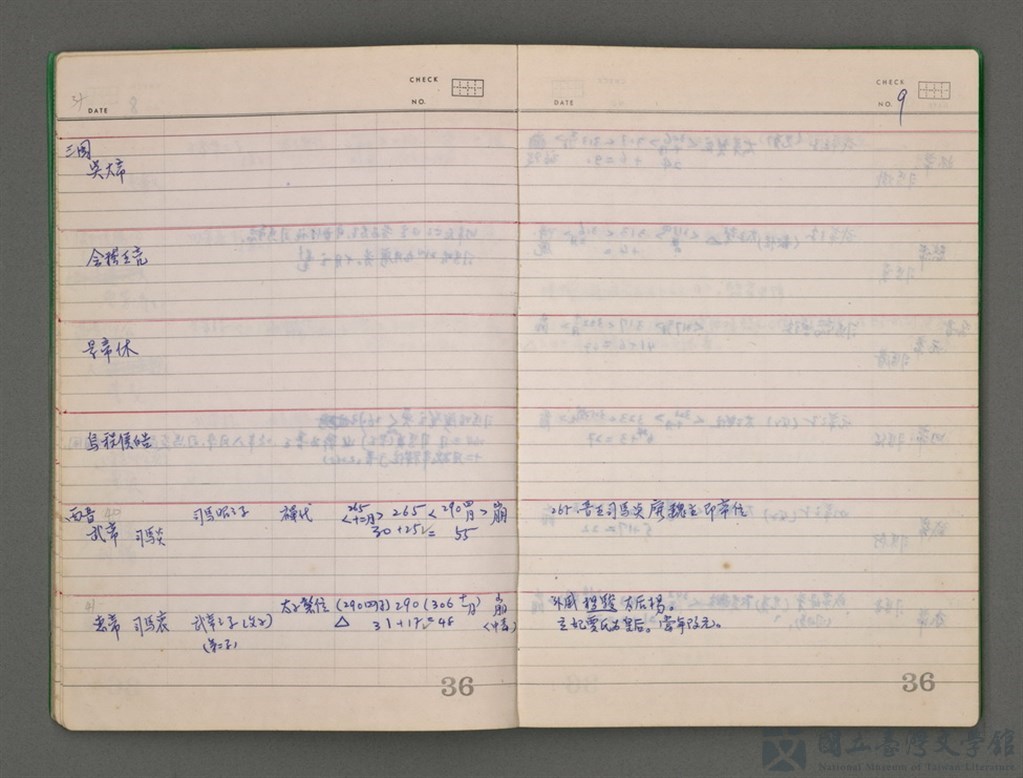 DATE
CHECK
NO.
三国
吳大帝
会稽王亮
景帝休
烏程侯皓
西晋
武帝 司馬炎
司馬昭之子 禅代 265<十二月> 265 <290四月> 崩
30+25= 55
惠帝 司馬衷 武帝之子(次子)
(第二子)
太子繁位 (290四月) 290 (306十一月) 崩
△ 31+17=48 <中毒>
36
DATE
CHECK
NO. 9
265 晋王司馬炎廃魏主即帝位
外戚楊駿 太后楊。
立妃賈氏為皇后。當年改元。
36
國立臺灣文學館
National Museum of Taiwan Literature